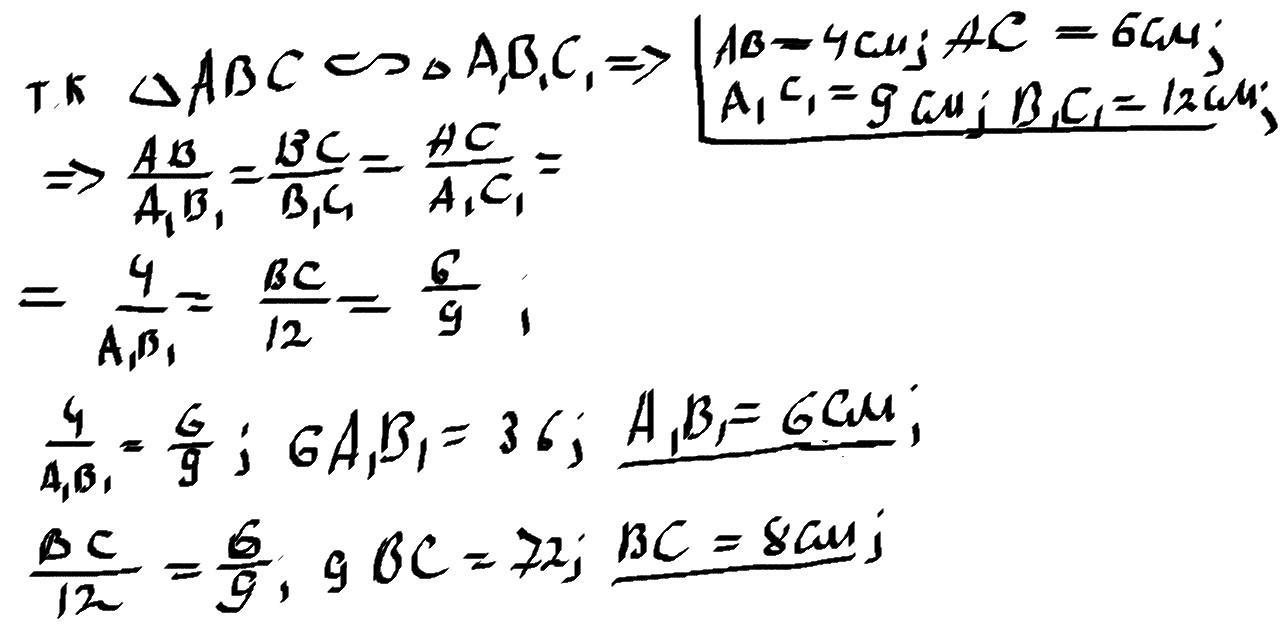 т.к △ABC ∽ △A₁B₁C₁ => AB = 4см; AC = 6см;
A₁C₁ = 9см; B₁C₁ = 12см;
=> AB/A₁B₁ = BC/B₁C₁ = AC/A₁C₁ =
= 4/A₁B₁ = BC/12 = 6/9 ;
4/A₁B₁ = 6/9 ; 6A₁B₁ = 36; A₁B₁ = 6см;
BC/12 = 6/9; 9BC = 72; BC = 8см;